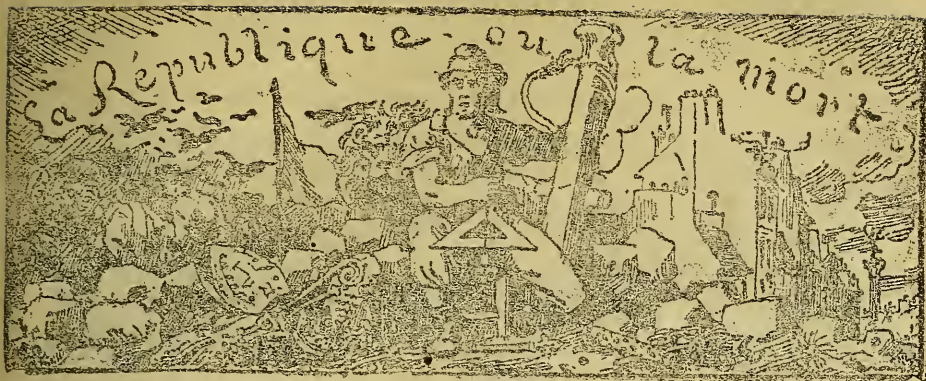 La République ou la Mort